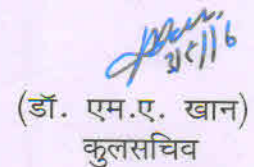 (डॉ. एम.ए. खान)
कुलसचिव